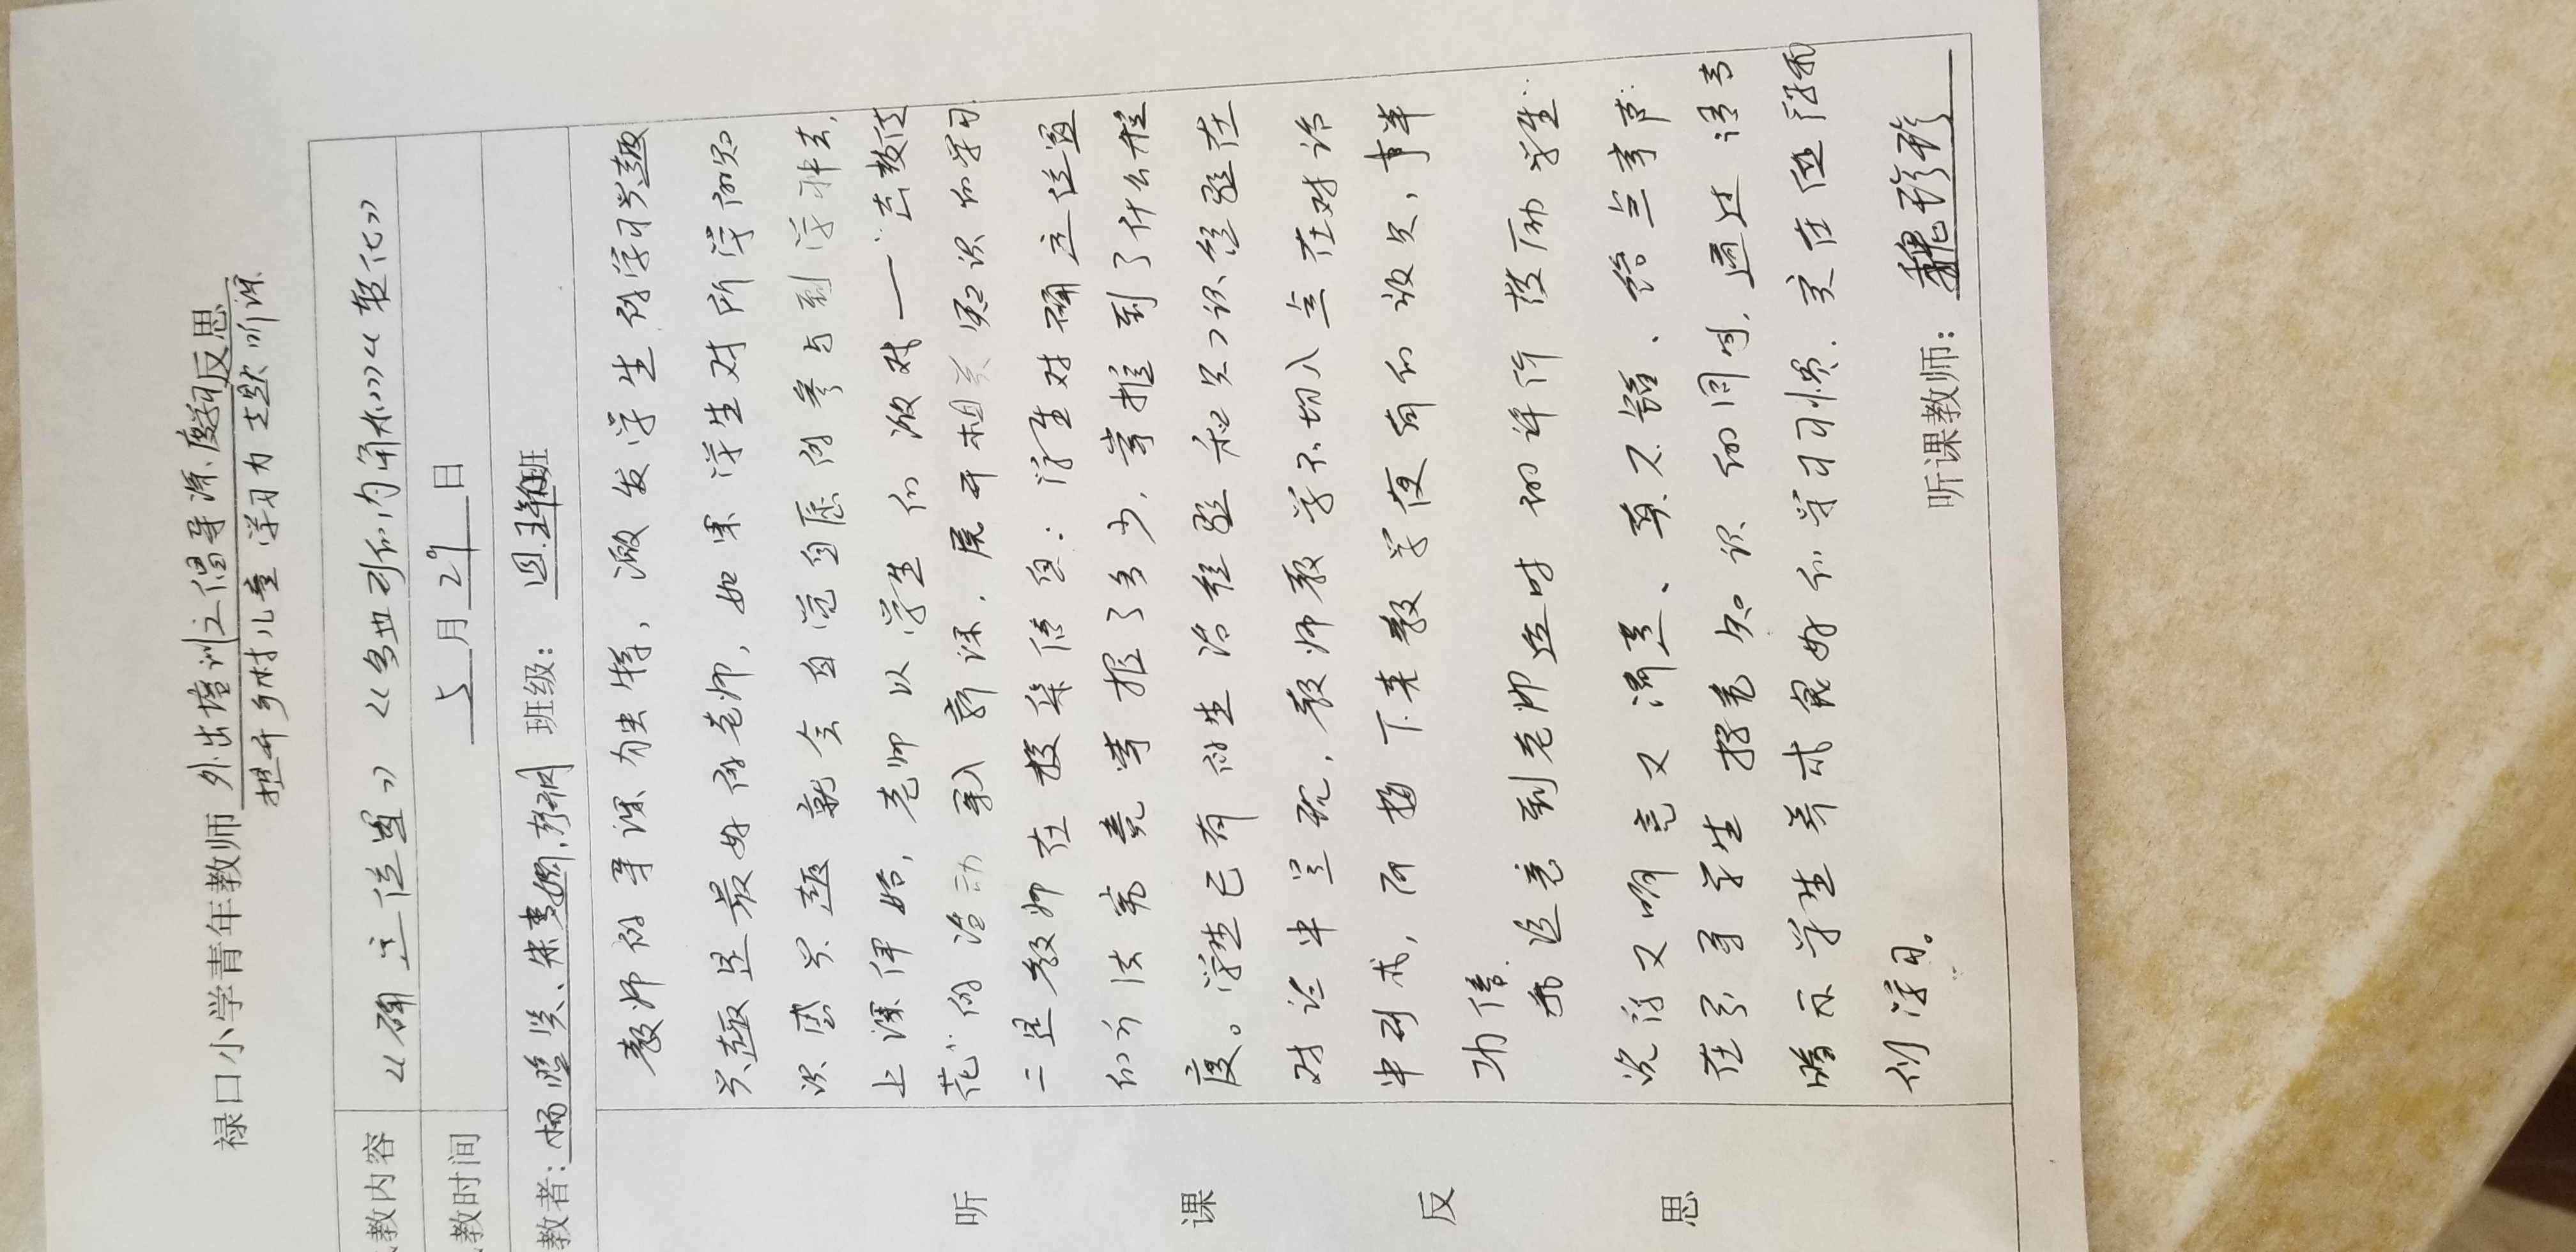 禄口小学青年教师 外出培训之倡导深度学习 反思
提升乡村儿童学习力主题听课
教内容 《确定位置》《多边形的内角和》《转化》
教时间 5月29日
教者: 班级: 四.五年级班
教师的导课独特,激发学生的学习兴趣
兴趣是最好的老师,如果学生对所学的知
识感兴趣就会自觉自愿的参与到学习中去,
上课伊始,老师以学生的
花”的活动导入新课.展开相关知识的学习.
二是教师在搜集信息:学生对确定位置
的方法究竟掌握了多少,掌握到了什么程
度。学生已有的生活经验和知识经验在
对话中呈现,教师教学的切入点在对话
中形成,而接下来教学便有的放矢,事半
功倍.
我注意到老师适时的评价鼓励学生“
说得又响亮又清楚、真不错、给点掌声”
在引导学生探究知识的同时,通过语言
暗示学生养成良好的学习习惯.实在值得我
们学习。
听课反思
听课教师: 魏珍珍